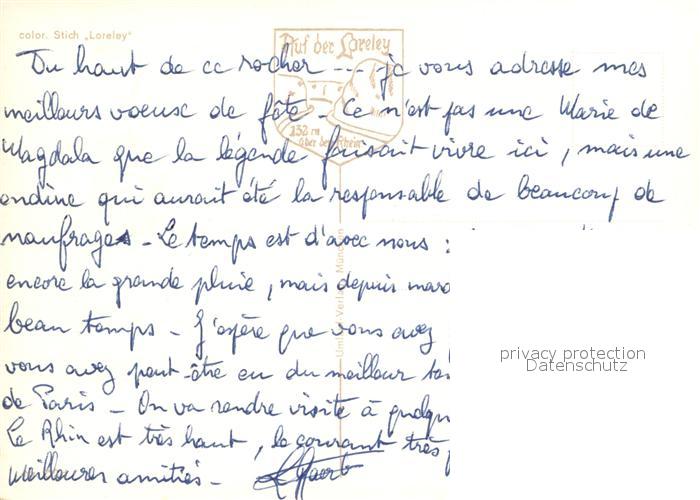 color. Stich „Loreley"
Auf der Loreley
132 m über dem Rhein
Du haut de ce rocher --- je vous adresse mes
meilleurs voeux de fête - Ce n'est pas une Marie de
Magdala que la légende faisait vivre ici, mais une
ondine qui aurait été la responsable de beaucoup de
naufrages - Le temps est d'avec nous :
encore la grande pluie, mais depuis
beau temps - J'espère que vous avez
vous avez peut-être eu du meilleur
de Paris - On va rendre visite à
Le Rhin est très haut, le courant très
Meilleures amitiés -
München
privacy protection
Datenschutz